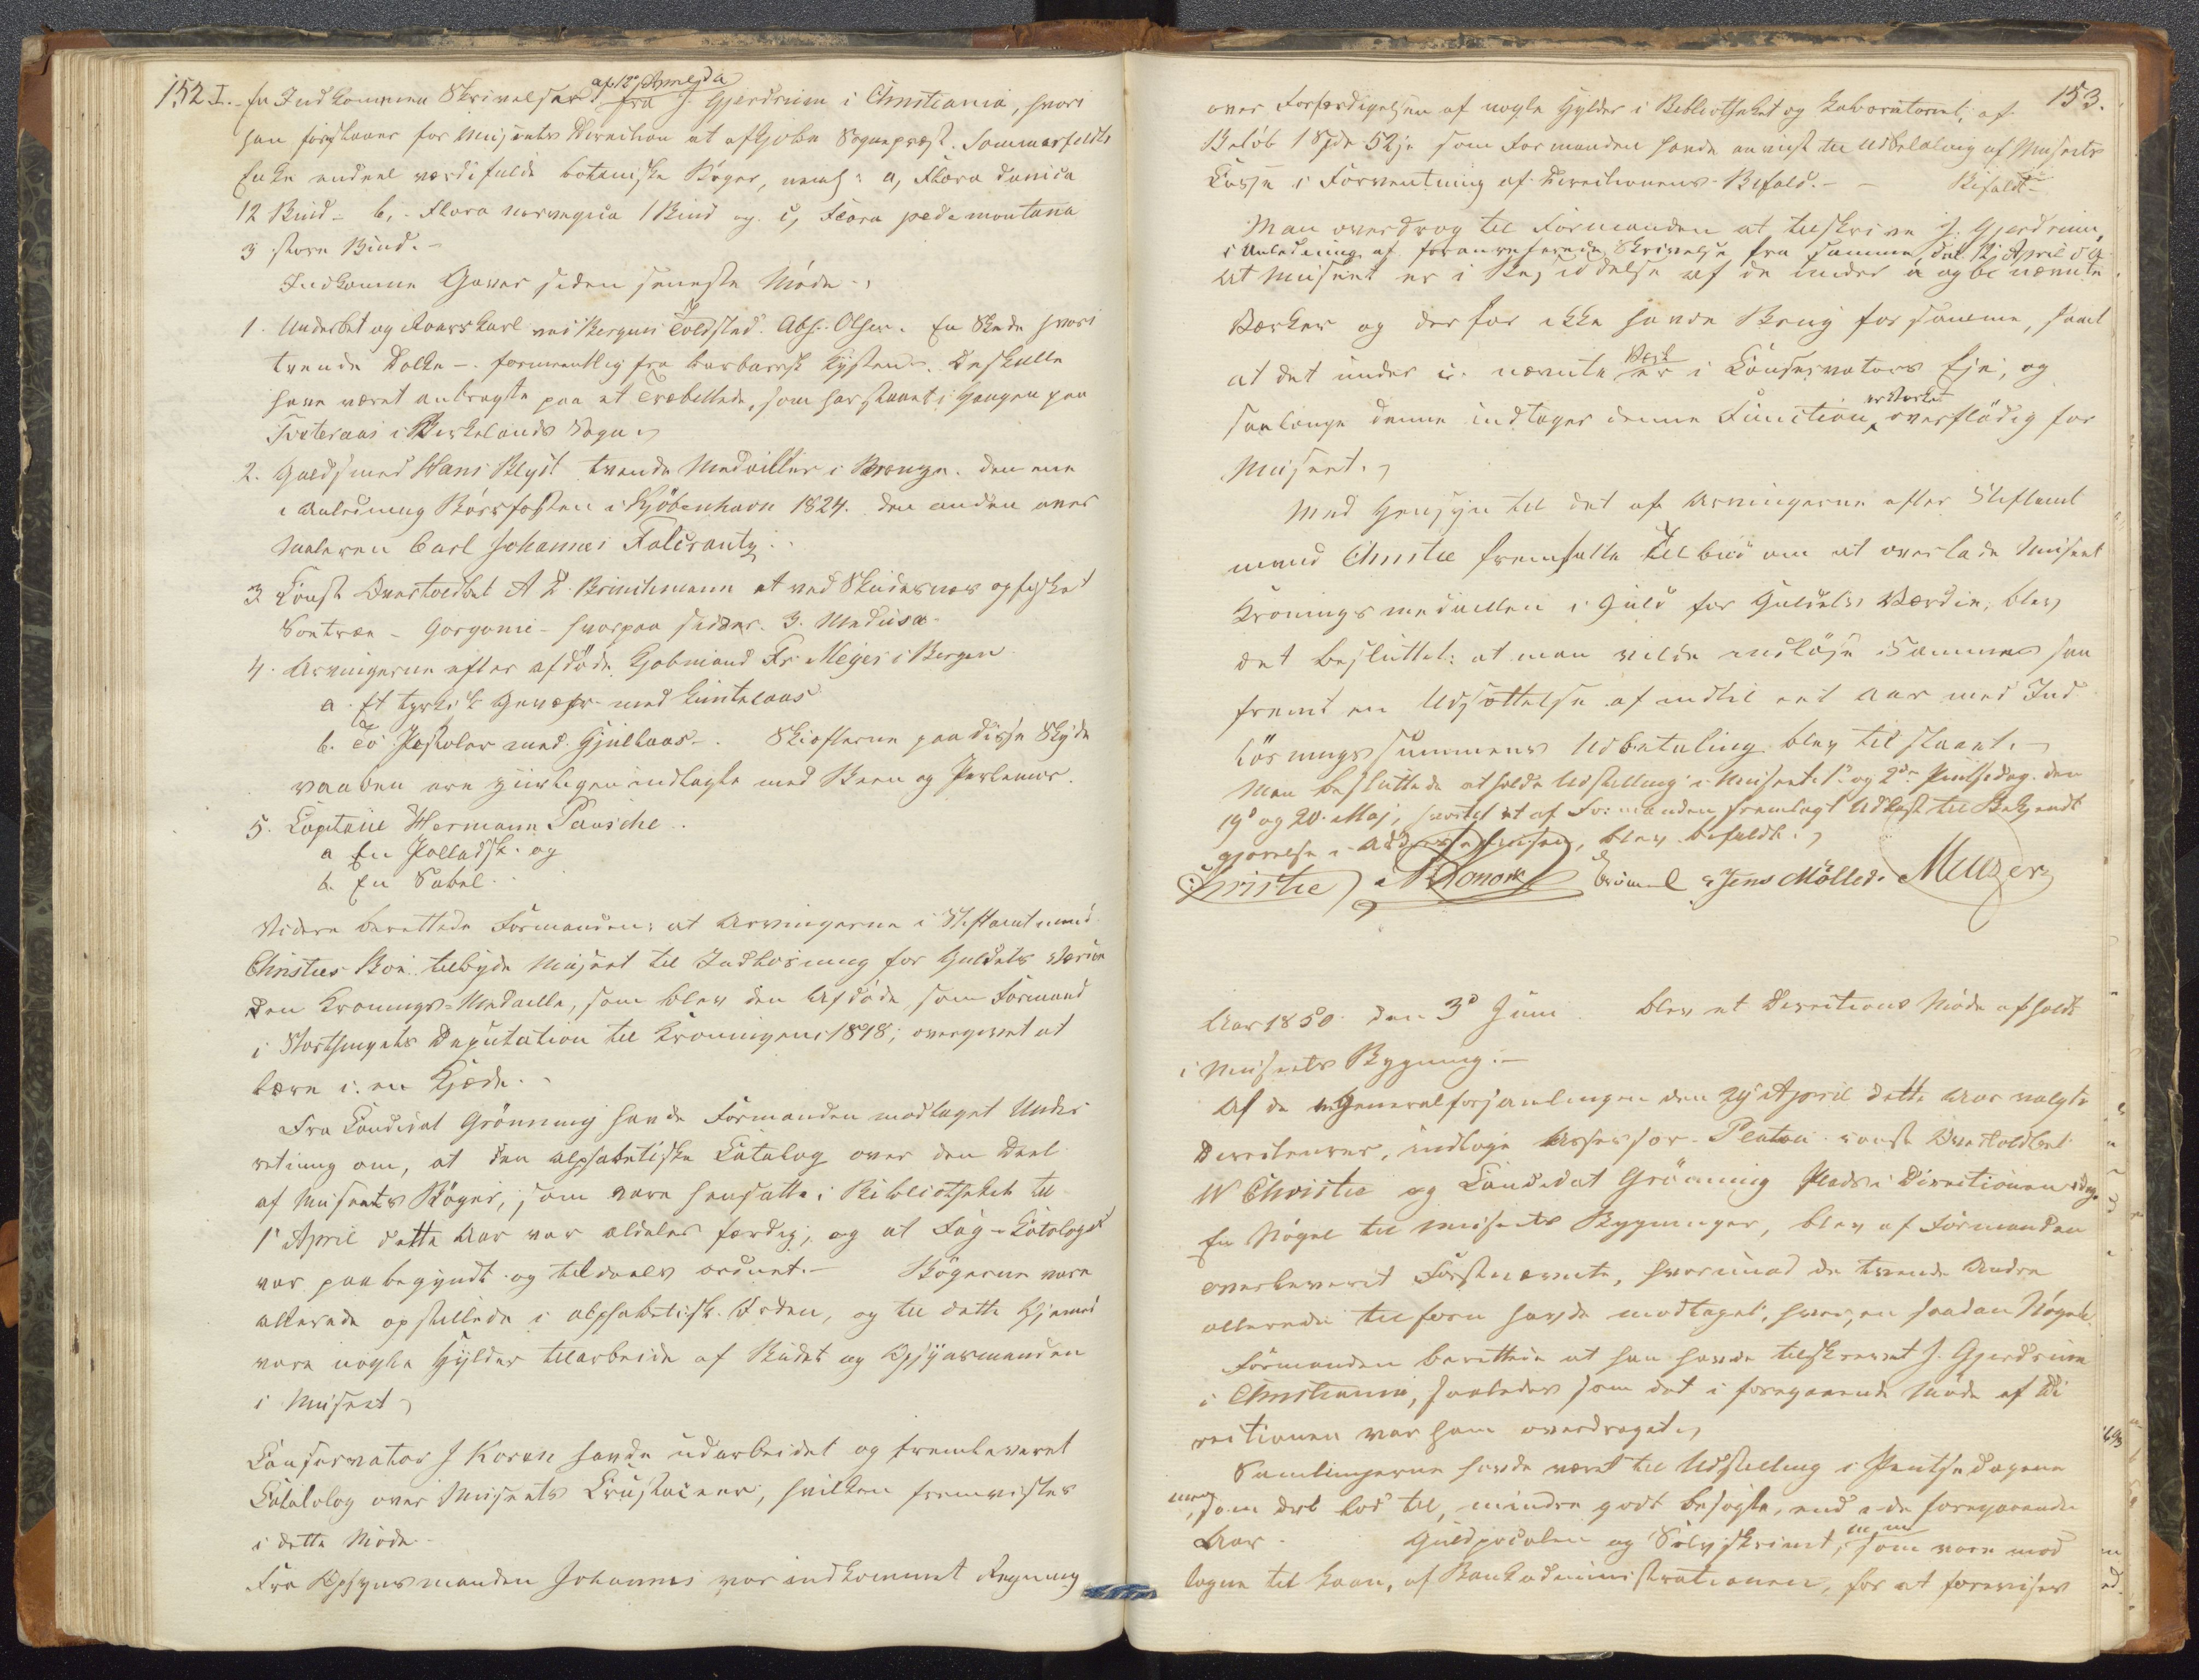 152
I. En Indkommen Skrivelser af 12 April da fra J. Gjerdrum i Christiania, hvori
han foreslaaer for Museets Direction at afkjøbe Sognepræst Sommerfeldts
Enke endeel værdifulde botaniske Bøger, nemlig: a, Flora danica
12 Bind - b, Flora norvegica 1 Bind og c, Flora pedemontana
3 store Bind. -
Indkomne Gaver siden seneste Møde.
1. Underbet og Roerskarl ved Bergens Toldsted Abs. Olsen. En Skede hvori
tvende Dolke - formeentlig fra barbaresk Kysten. De skulle
have været anbragte paa et Træbillede, som har staaet i Haugen paa
i Birkelands Sogn.
2. Guldsmed Hans Blydt tvende Medailler i Bronze. den ene
i Anledning Børsfesten i Kjöbenhavn 1824. den anden over
Maleren Carl Johannes Falcrantz.
3. Const Overtoldbet A L Brinchmann et ved Skudesnæs opfisket
Søetræe - Gorgonie - hvorpaa sidder 3. Medusæ -
4. Arvingerne efter afdøde Kjøbmand Fr. Meyer i Bergen
a. Et tyrkisk Gevæhr med Luntelaas
b. To Pistoler med Hjullaas -. Skiefterne paa disse Skyde
vaaben ere ziirligen indlagte med Been og Perlemor.
5. Capitain Hermann Pausche.
a En Palladsk. og
b. En Sabel.
Videre berettede Formanden: at Arvingerne i Stiftamtmand
Christies Boe tilbyde Museet til Indløsning for Guldets Værdie
den Kronings-Medaille, som blev den Afdøde, som Formand
i Storthingets Deputation til Kroningen 1818; overgivet at
bære i en Kjæde.
Fra Candidat Grönning havde Formanden modtaget Under
retning om, at den alphabetiske Catalog over den Deel
af Museets Bøger, som vare hensatte i Bibliotheket til
1 April dette Aar var aldeles færdig, og at Fag-Cataloget
var paabegyndt og tildeels ordnet. - Bøgerne vare
allerede opstillede i alphabetisk Orden, og til dette Hjemed
vare nogle Hylder tilarbeide af Budet og Opsynsmanden
i Museet
Conservator J Koren havde udarbeidet og fremleveret
Catalolog over Museets Crustaceer, hvilken fremvistes
i dette Møde -
Fra Opsynsmanden Johannes var indkommet Regning
153.
over Forfærdigelsen af nogle Hylder i Bibliotheket og Laboratoriet, af
Beløb 1 Spd 52 ſ som Formanden havde anvist til Udbetaling af Museets
Casse i Forventning af Directionens Bifald. - - Bifaldt -
Man overdrog til Formanden at tilskrive J. Gjerdrum,
i Anledning af foranførende Skrivelse fra samme, dat. 12 April d A
at Museet er i Besiddelse af de under a og b: nævnte
Værker og derfor ikke havde Brug for samme, samt
at det under c. nævnte Værk er i Conservators Eje, og
saalænge denne indtager denne Function, er Værket overflödig for
Museet.
Med Hensyn til det af Arvingerne efter Stiftamt
mand Christie fremsatte Tilbud om at overlade Museet
Kroningsmedaillen i Guld for Guldets Værdie, blev
det besluttet: at man vilde indløse Sammes saa
fremt en Udsættelse af indtil eet Aar med Ind
løsningssummens Udbetaling blev tilstaaet.
Man besluttede at holde Udstilling i Museet 1 og 2den Pintsedag den
19 og 20. Maj, hvortil et af Formanden fremlagt Udkast til Bekjendt
gjørelse i Addresseavisen, blev bifaldt.
Christie Konow Grönning Jens Möller. Meltzer
Aar 1850 den 3 Juni blev et Directions Møde afholdt
i Museets Bygning. -
Af de i Generalforsamlingen den 29 April dette Aar valgte
Directeurer, indtoge Assessor Platou const Overtoldbet
W Christie og Candidat Grönning Plads i Directionen idag.
En Nøgel til Museets Bygninger, blev af Formanden
overleveret Førstnævnte, hvorimod de tvende Andre
allerede tilforn havde modtaget, hver, en saadan Nøgel.
Formanden berettede at han havde tilskrevet J. Gjerdrum
i Christiania, saaledes som det i foregaaende Møde af Di
rectionen var ham overdraget.
Samlingerne havde været til Udstilling i Pintsedagene
men, som det lod til, mindre godt besøgte, end i de foregaaende
Aar. Guldpocalen og Sølvskrinet, m m som vare mod
tagne til Laan, af Bankadministrationen, for at forevises